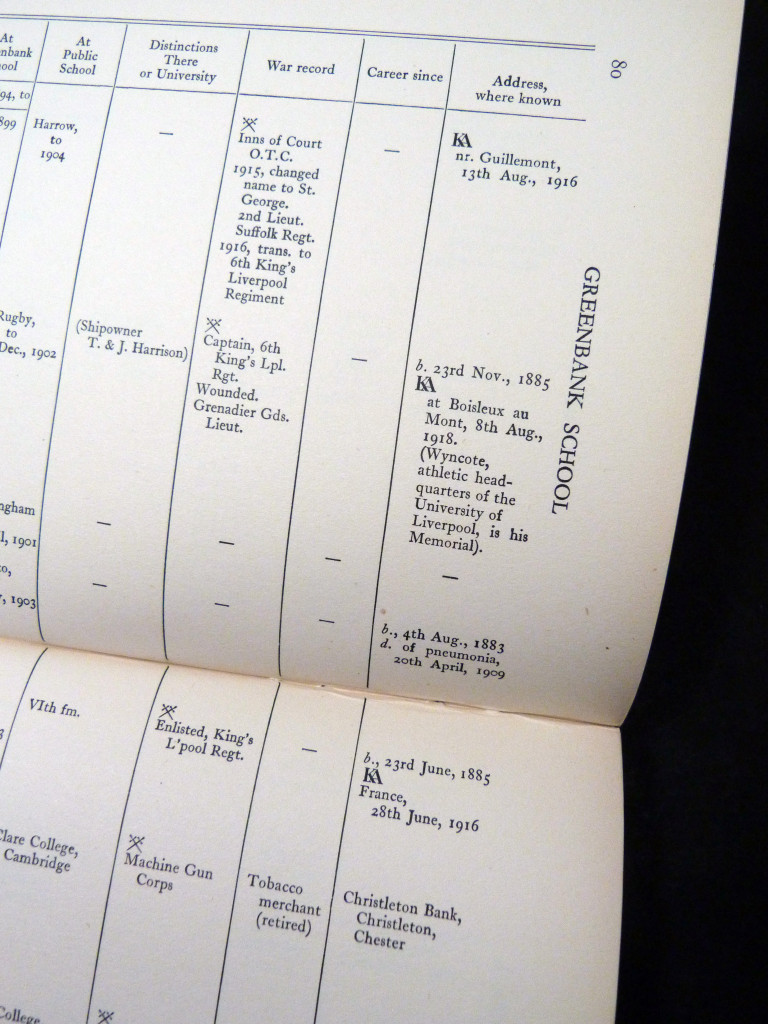 80
GREENBANK SCHOOL
At
Public
School
Distinctions
There
or University
War record
Career since
Address,
where known
94, to
899
Harrow,
to
1904
—
Inns of Court
O.T.C.
1915, changed
name to St.
George.
2nd Lieut.
Suffolk Regt.
1916, trans. to
6th King's
Liverpool
Regiment
—
KA
nr. Guillemont,
13th Aug., 1916
Rugby,
to
Dec., 1902
(Shipowner
T. & J. Harrison)
Captain, 6th
King's Lpl.
Rgt.
Wounded.
Grenadier Gds.
Lieut.
—
b. 23rd Nov., 1885
KA
at Boisleux au
Mont, 8th Aug.,
1918.
(Wyncote,
athletic head-
quarters of the
University of
Liverpool, is his
Memorial).
ngham
l, 1901
—
—
—
—
to,
, 1903
—
—
—
b., 4th Aug., 1883
d. of pneumonia,
20th April, 1909
VIth fm.
Enlisted, King's
L'pool Regt.
—
b., 23rd June, 1885
KA
France,
28th June, 1916
Clare College,
Cambridge
Machine Gun
Corps
Tobacco
merchant
(retired)
Christleton Bank,
Christleton,
Chester
College